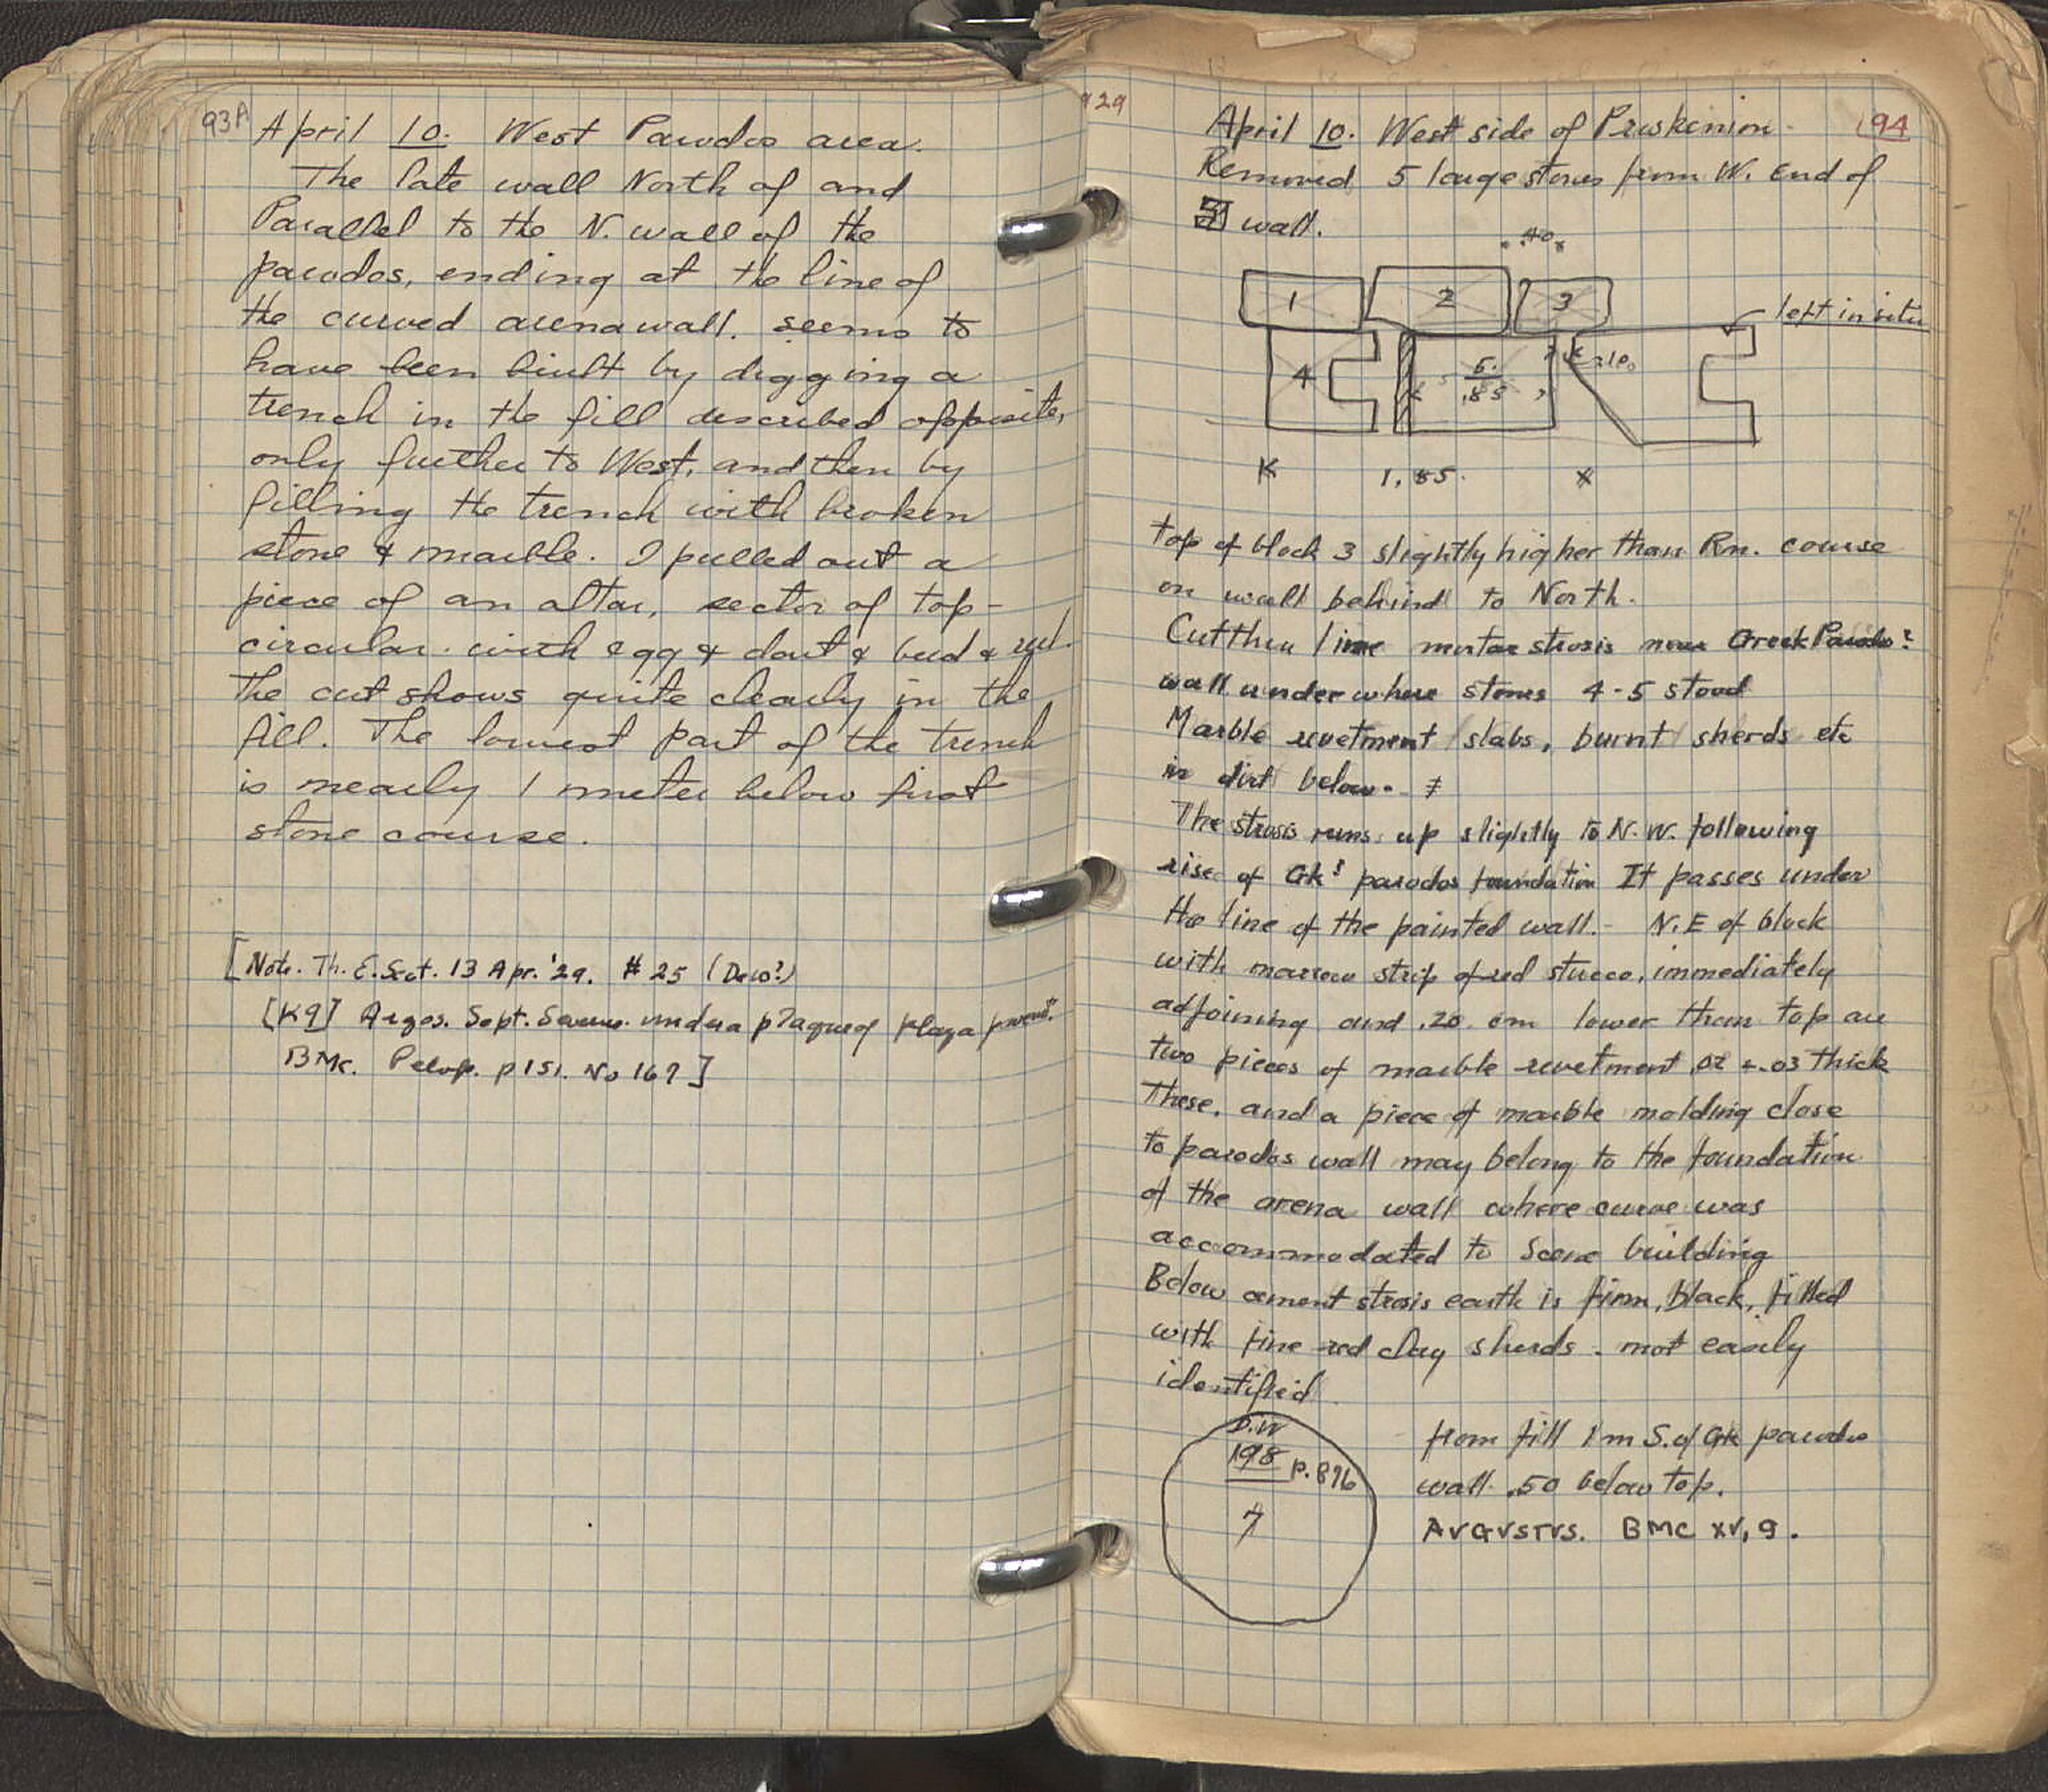 93A
April 10. West Parodos area.
The late wall North of and
Parallel to the N. wall of the
parodos, ending at the line of
the curved arena wall. seems to
have been built by digging a
trench in the fill described opposite,
only further to West, and then by
filling the trench with broken
stone & marble. I pulled out a
piece of an altar, sector of top -
circular. with egg & dart & bead & reel.
The cut shows quite clearly in the
fill. The lowest part of the trench
is nearly 1 meter below first
stone course.
[Note. Th. E. Sect. 13 Apr. '29. # 25 (Dew?)
[K9] Argos. Sept. Severus. under a plaque of plaza pavemt.
BMC. Pelop. p 151. No 167]
929
94
April 10. West side of Proskenion -
Removed 5 large stones from W. End of
wall.
.40
1 2 3
left in situ
4 5. .85 .10
K 1.85. x
top of block 3 slightly higher than Rn. course
on wall behind to North.
Cut thru lime mortar strosis near Greek Parodos?
wall under where stones 4-5 stood
Marble revetment slabs, burnt sherds etc
in dirt below. ‡
The strosis runs up slightly to N.W. following
rise of Gk? parodos foundation It passes under
the line of the painted wall. - N.E of block
with narrow strip of red stucco, immediately
adjoining and .20 cm lower than top are
two pieces of marble revetment .02 + .03 thick
These, and a piece of marble molding close
to parodos wall may belong to the foundation
of the arena wall where curve was
accommodated to Scene building
Below cement strosis earth is firm, black, filled
with fine red clay sherds - not easily
identified
D.W
198 p. 896
7
from fill 1 m S. of Gk parodos
wall .50 below top.
AVGVSTVS. BMC XV, 9.